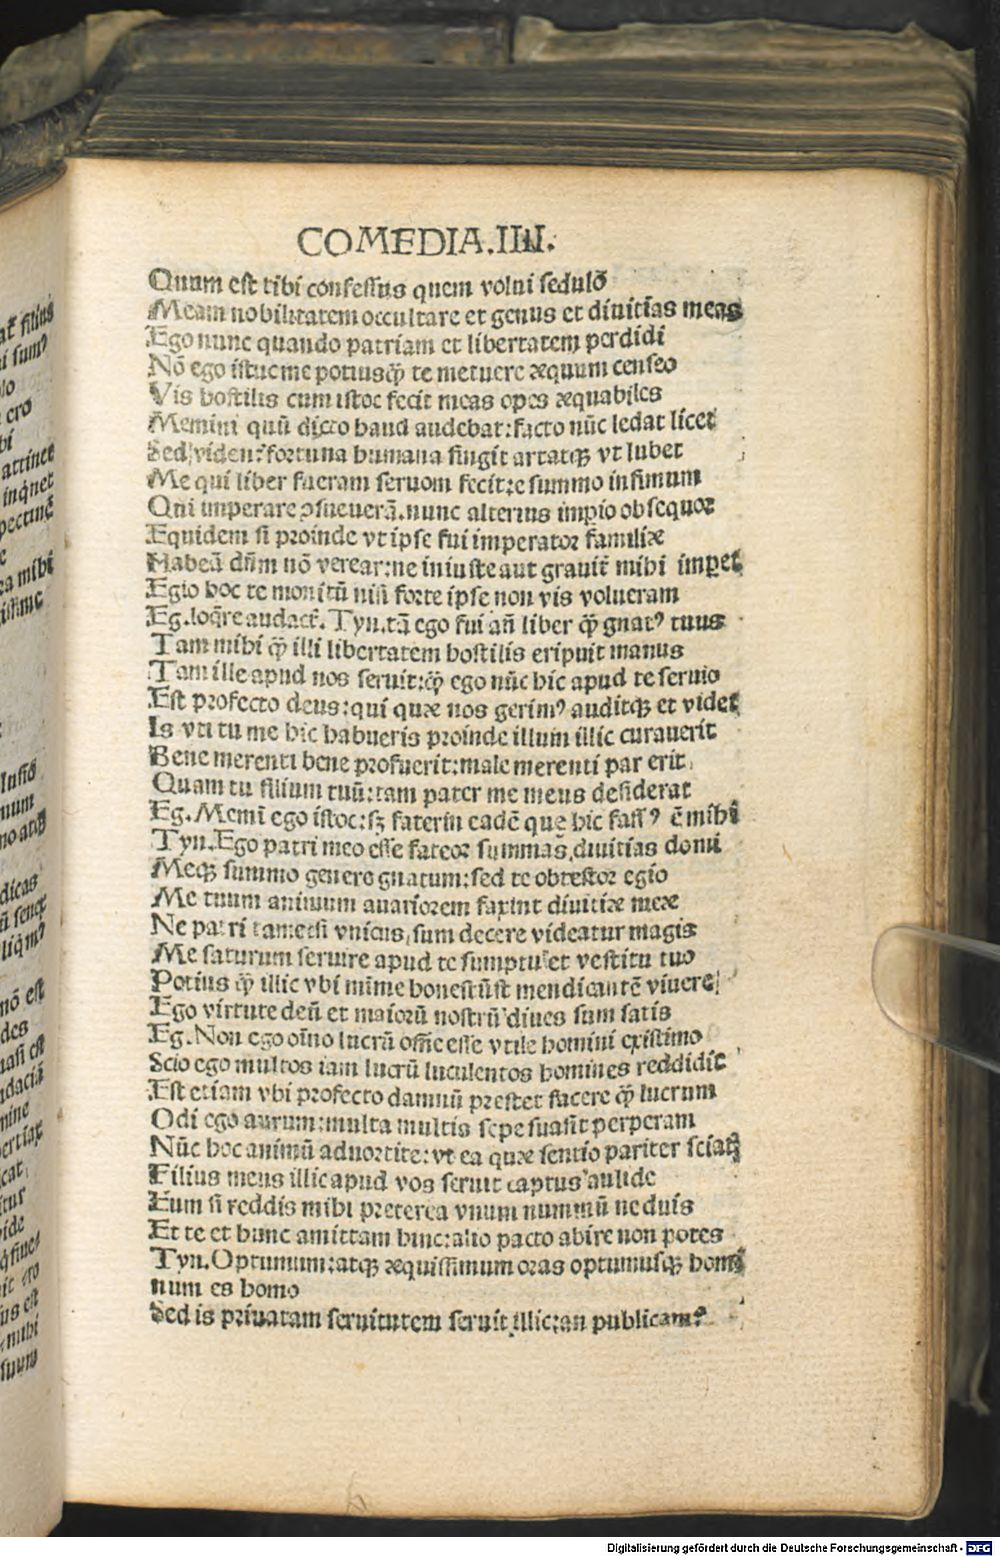 COMEDIA.IIII.
Quum est tibi confessus quem volui sedulō
Meam nobilitatem occultare et genus et diuitias meas
Ego nunc quando patriam et libertatem perdidi
Nō ego istuc me potiusꝙ̄ te metuere æquum censeo
Vis hostilis cum istoc fecit meas opes æquabiles
Memini quū dicto haud audebat: facto nūc ledat licet
Sed viden? fortuna humana fingit artatqꝫ vt lubet
Me qui liber fueram seruom fecit: e summo infimum
Qui imperare ꝯsueuerā. nunc alterius impio obsequor
Equidem si proinde vt ipse fui imperator familiæ
Habeā dn̄m nō verear: ne iniuste aut grauit̄ mihi impet
Egio hoc te monitū nisi forte ipse non vis volueram
Eg. loq̄re audact̄. Tyn. tā ego fui an̄ liber ꝙ̄ gnatꝰ tuus
Tam mihi ꝙ̄ illi libertatem hostilis eripuit manus
Tam ille apud nos seruit: ꝙ̄ ego nūc hic apud te seruio
Est profecto deus: qui quæ nos gerimꝰ auditqꝫ et videt
Is vti tu me hic habueris proinde illum illic curauerit
Bene merenti bene profuerit: male merenti par erit
Quam tu filium tuū: tam pater me meus desiderat
Eg. Memī ego istoc: sꝫ faterin eadē que hic fassꝰ ē mihi
Tyn. Ego patri meo esse fateor summas diuitias domi
Meqꝫ summo genere gnatum: sed te obtestor egio
Me tuum animum auariorem faxint diuitiæ meæ
Ne patri tametsi vnicus, sum decere videatur magis
Me saturum seruire apud te sumptu et vestitu tuo
Potius ꝙ̄ illic vbi mīme honestūst mendicantē viuere
Ego virtute deū et maiorū nostrū diues sum satis
Eg. Non ego oīno lucrū om̄e esse vtile homini existimo
Scio ego multos iam lucrū luculentos homines reddidit
Est etiam vbi profecto damnū prestet facere ꝙ̄ lucrum
Odi ego aurum: multa multis sepe suasit perperam
Nūc hoc animū aduortite: vt ea quæ sentio pariter sciatꝭ
Filius meus illic apud vos seruit captus aulide
Eum si reddis mihi preterea vnum nummū ne duis
Et te et hunc amittam hinc: alio pacto abire non potes
Tyn. Optumum: atqꝫ æquissimum oras optumusqꝫ homi
num es homo
Sed is priuatam seruitutem seruit illic: an publicam?
Digitalisierung gefördert durch die Deutsche Forschungsgemeinschaft - DFG